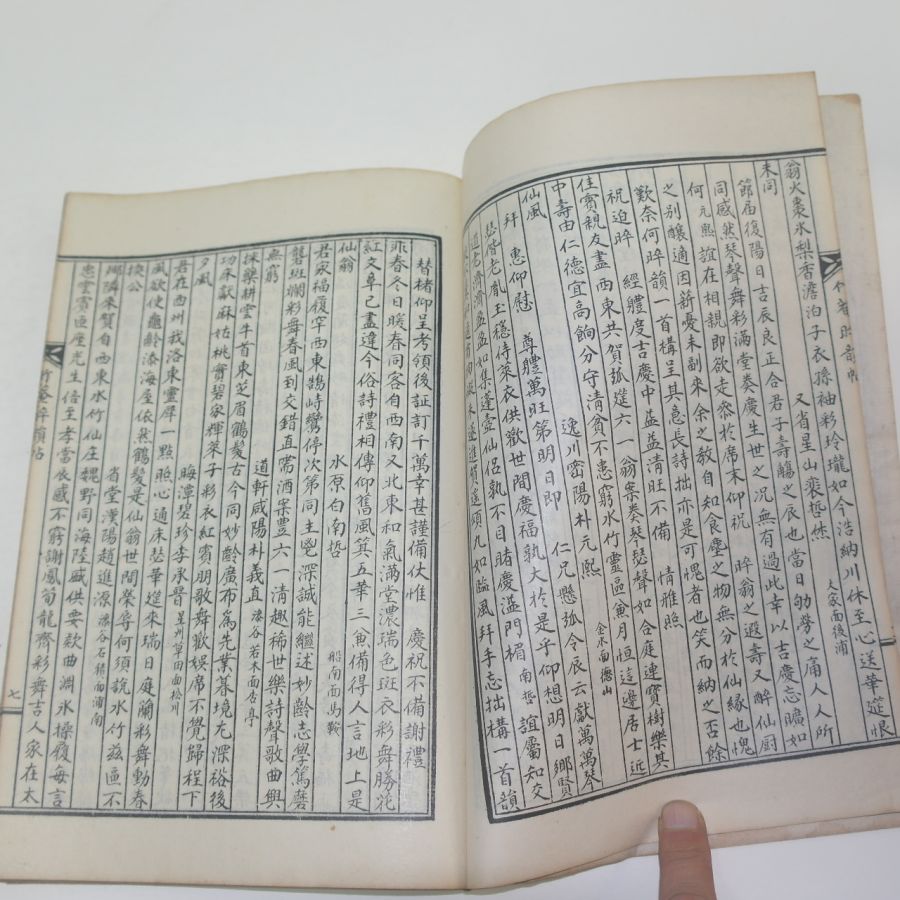 翁火棗氷梨香澹泊子衣孫袖彩玲瓏如今浩納川休至心送華筵恨
未同 又省星山裴晢然 大家面後浦
節届復陽日吉辰良正合 君子壽觴之辰也當日劬勞之痛人人所
同感然琴聲舞彩滿堂奏慶生世之况無有過此幸以吉慶忘曠如
何 元熙誼在相親即欲走然於席末仰祝 晬翁之遐壽又醉仙厨
之別釀適因薪憂未副來余之教自知食塵之物無分於仙緣也愧
歎奈何晬韻一首構呈其怠長詩拙亦是可愧者也笑而納之否餘
祝迫晬 經體度吉慶中益益淸旺不備 情雅照
佳賓親友盡西東共賀弧筵六一翁案奏琴瑟聲如合庭連寶樹樂其
中壽由仁德宜高餉分守淸貧不患窮水竹靈區魚月恒這邊居士近
仙風 逸川密陽朴元熙 金水面德山
拜 惠仰慰 尊體萬旺第明日即 仁兄懸弧令辰云獻萬萬琴
瑟偕老獻王穩侍萊衣供歡世間慶福孰大於是乎仰想明日鄉賢
道老濟濟盈盈如集蓬壺仙侶孰不目睹慶溢門楣南晢誼屬知交
進賀遥頌九如臨風拜手忘拙構一首韻
替楮仰呈考領後証訂千萬幸甚謹備伏惟 慶祝不備謝禮
兆春今日暖春同客自西南又北東和氣滿堂濃瑞色斑衣彩舞勝花
紅文章已盡違今俗詩禮相傳仰舊風箕五華三魚備得人言地上是
仙翁 水原白南晢 船南面馬鞍
君家福履罕西東鵠峙鸞停次第同主鬯深誠能繼述妙齡志學篤磨
礱斑斕彩舞春風到交錯直需酒案豊六一淸趣稀世樂詩聲歌曲興
無窮 道軒咸陽朴義直 漆谷若木面杏亭
採藥耕雲午首東芝眉鶴髮古今同妙齡廣布爲先業暮境尤深裕後
功床獻麻姑桃實碧家輝萊子彩衣紅賓朋歌舞歡娛席不覺歸程下
夕風 晦潭碧珍李承晉 星州草田面松川
君在西州我洛東靈犀一點照心通床瑟華筵來瑞日庭蘭彩舞動春
風欲使龜齡添海屋依然鶴髮是仙翁世間榮辱何須說水竹茲區不
換公 省堂漢陽趙進源 漆谷石積面浦南
鄉隣來賀自西東水竹仙庄魏野同海陸盛供要歎曲淵氷操履每言
忠堂賓迤座光生倍至孝當依感不窮謝鳳荀龍齊彩舞吉人家在太
竹菴晬韻帖
七